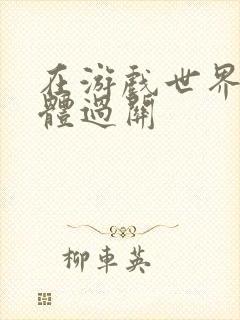 在游戏世界
體過關
柳車英